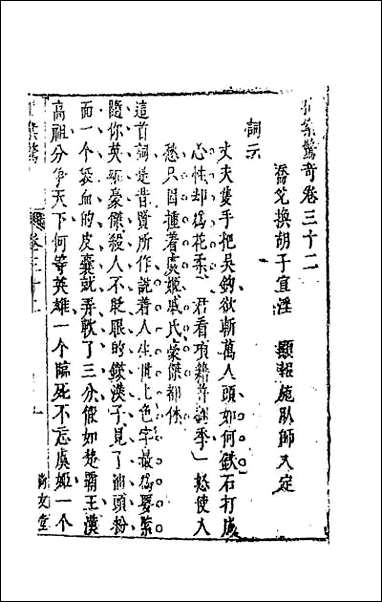 拍案驚奇卷三十二
喬兌換胡子宣淫　顯報施臥師入定
詞云
丈夫隻手把吳鈎欲斬萬人頭如何鉄石打成
心性却爲花柔　君看項籍并劉季一怒使人
愁只因撞着虞姬戚氏豪傑都休
這首詞是昔賢所作說着人生世上色字最爲要緊
隨你英雄豪傑殺人不眨眼的鐵漢子見了油頭粉
面一个袋血的皮囊就弄軟了三分假如楚霸王漢
高祖分爭天下何等英雄一個臨死不忘虞姬一个
尚友堂